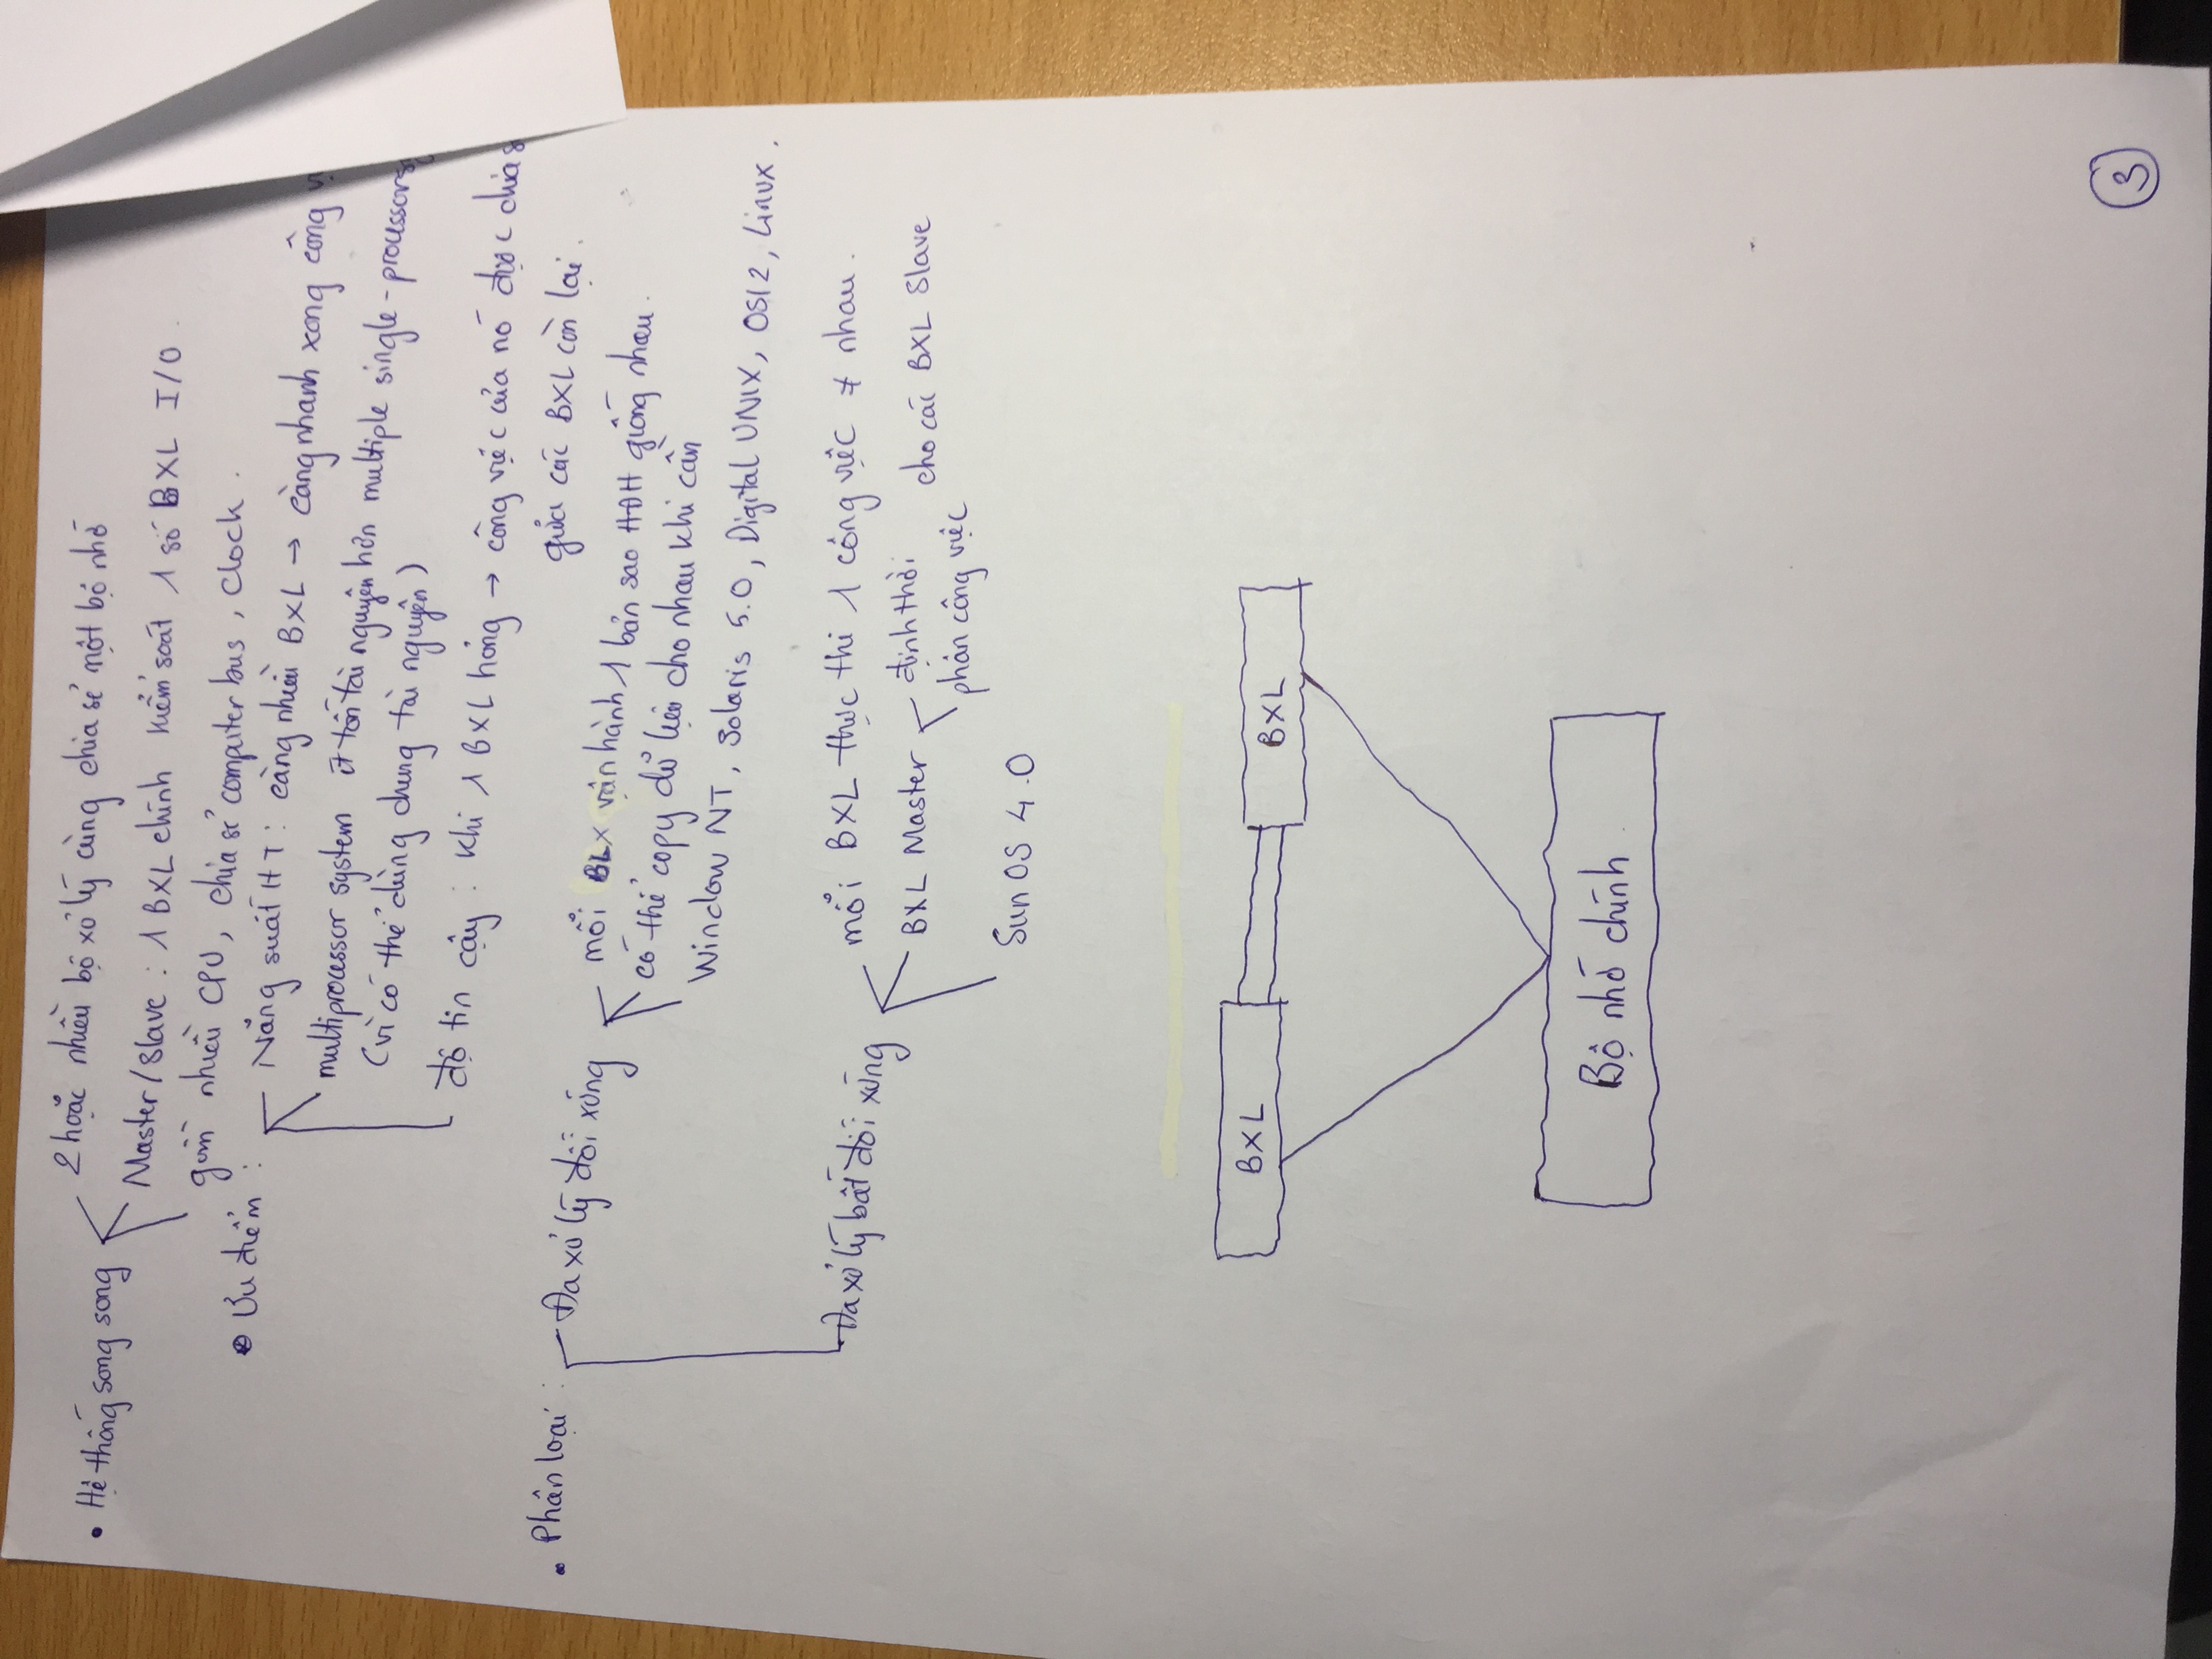 • Hệ thống song song
2 hoặc nhiều bộ xử lý cùng chia sẻ một bộ nhớ
Master/Slave : 1 BXL chính kiểm soát 1 số BXL I/O.
gồm nhiều CPU, chia sẻ computer bus, clock.
• Ưu điểm :
Năng suất HT : càng nhiều BXL → càng nhanh xong công
multiprocessor system ít tốn tài nguyên hơn multiple single-processors
(vì có thể dùng chung tài nguyên)
độ tin cậy : khi 1 BXL hỏng → công việc của nó được chia
giữa các BXL còn lại.
• Phân loại :
Đa xử lý đối xứng
mỗi BLX vận hành 1 bản sao HĐH giống nhau.
có thể copy dữ liệu cho nhau khi cần
Window NT, Solaris 5.0, Digital UNIX, OS/2, Linux.
Đa xử lý bất đối xứng
mỗi BXL thực thi 1 công việc ≠ nhau.
BXL Master
định thời
phân công việc
cho các BXL Slave
Sun OS 4.0
BXL
BXL
Bộ nhớ chính
3